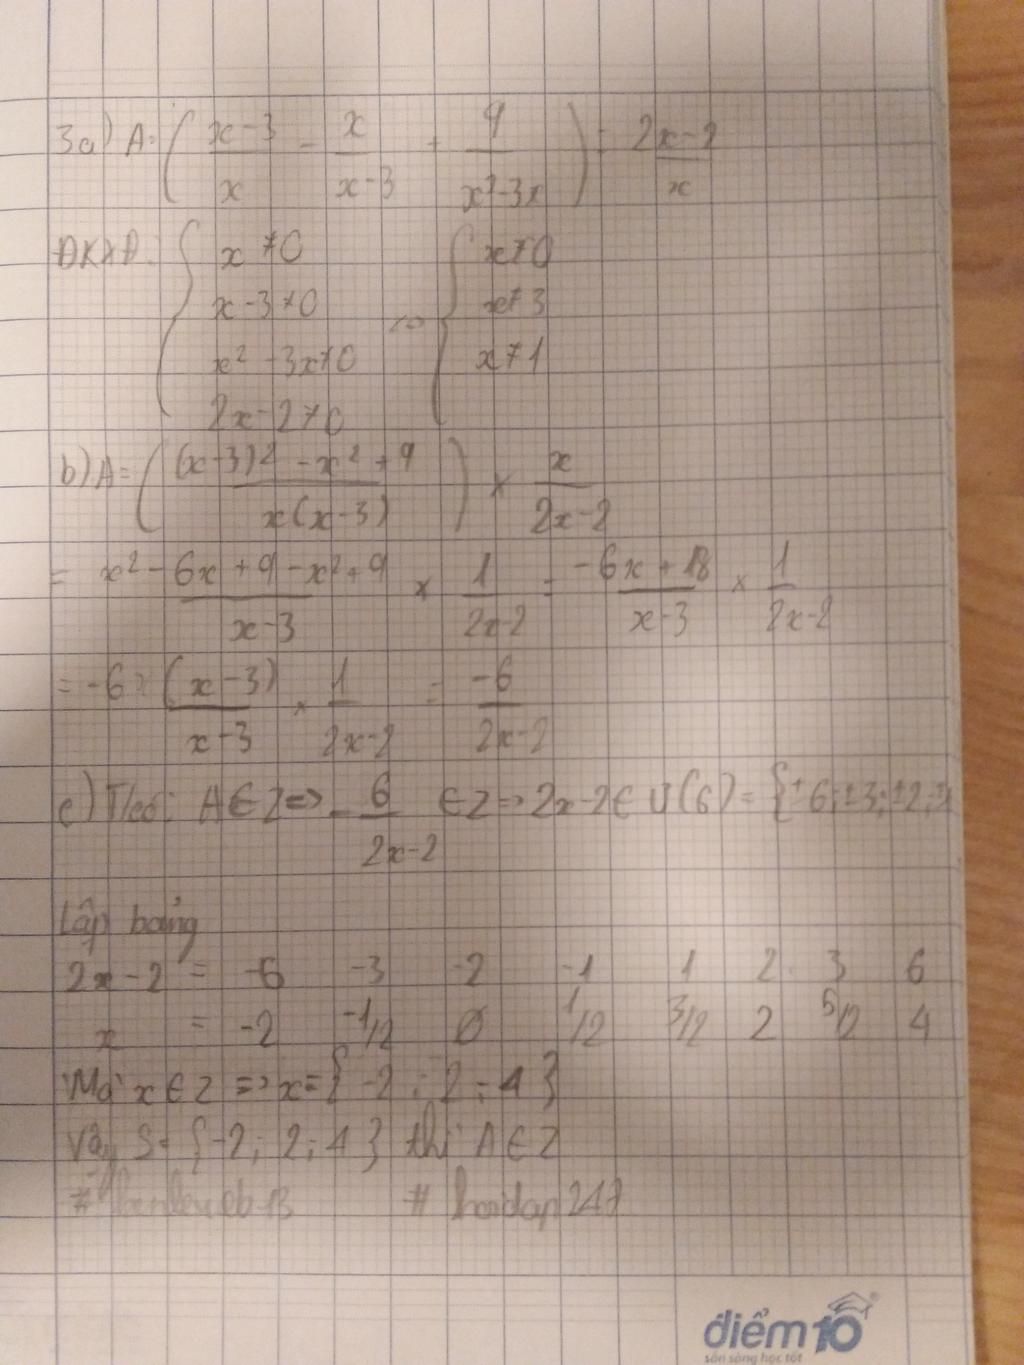 3a) A = ( (x-3)/x - x/(x-3) + 9/(x²-3x) ) : (2x-2)/x
ĐKXĐ: { x ≠ 0 ; x-3 ≠ 0 ; x²-3x ≠ 0 ; 2x-2 ≠ 0 <=> { x ≠ 0 ; x ≠ 3 ; x ≠ 1
b) A = ( ((x-3)² - x² + 9)/(x(x-3)) ) × x/(2x-2)
= (x² - 6x + 9 - x² + 9)/(x-3) × 1/(2x-2) = (-6x + 18)/(x-3) × 1/(2x-2)
= -6 × (x-3)/(x-3) × 1/(2x-2) = -6/(2x-2)
c) Theo: A ∈ Z => -6/(2x-2) ∈ Z => 2x-2 ∈ Ư(6) = {±6; ±3; ±2; ±1
Lập bảng
2x-2 = -6 -3 -2 -1 1 2 3 6
x = -2 -1/2 0 1/2 3/2 2 5/2 4
Mà x ∈ Z => x = { -2 ; 2 ; 4 }
Vậy S = { -2 ; 2 ; 4 } thì A ∈ Z
# hoidap247
điểm10
sẵn sàng học tốt